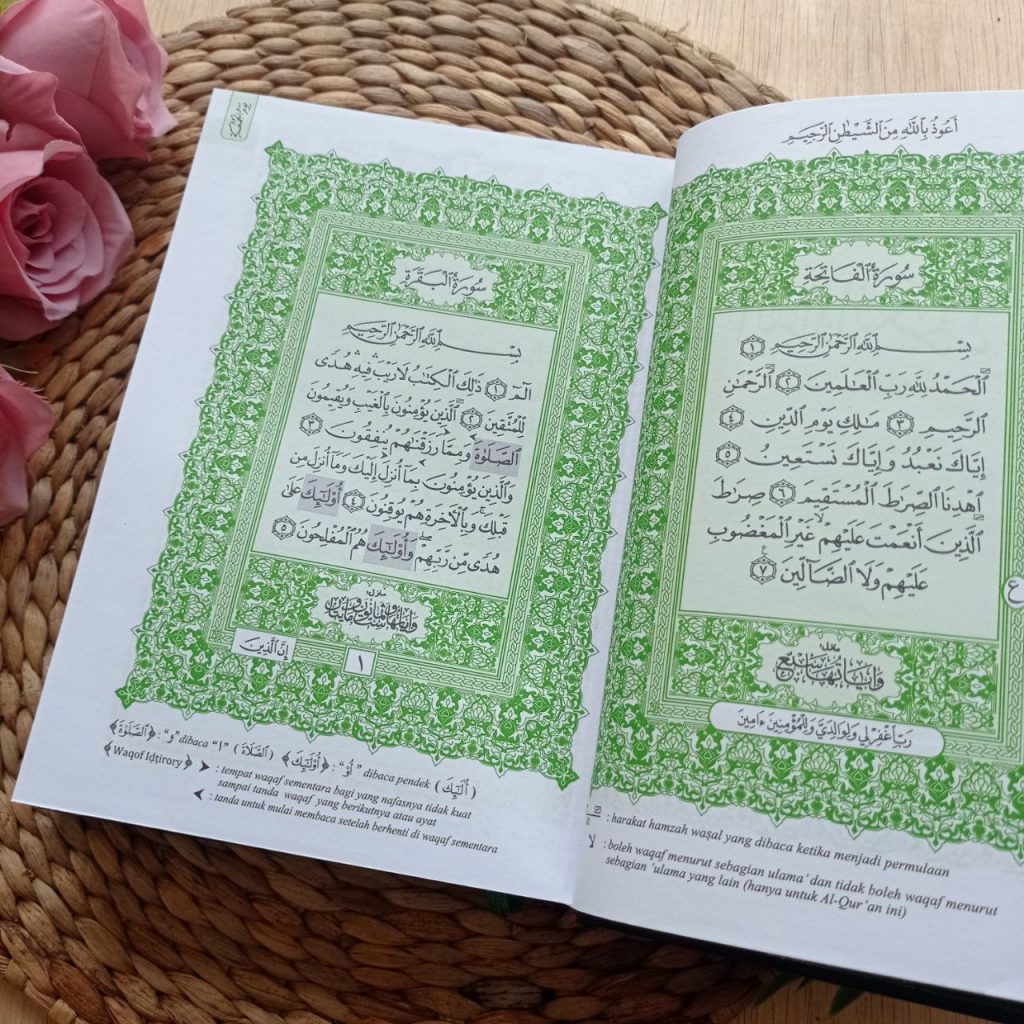 أَعُوذُ بِٱللَّهِ مِنَ ٱلشَّيْطَٰنِ ٱلرَّجِيمِ
سُورَةُ ٱلْفَاتِحَةِ
بِسْمِ ٱللَّهِ ٱلرَّحْمَٰنِ ٱلرَّحِيمِ ١
ٱلْحَمْدُ لِلَّهِ رَبِّ ٱلْعَٰلَمِينَ ٢ ٱلرَّحْمَٰنِ
ٱلرَّحِيمِ ٣ مَٰلِكِ يَوْمِ ٱلدِّينِ ٤
إِيَّاكَ نَعْبُدُ وَإِيَّاكَ نَسْتَعِينُ ٥
ٱهْدِنَا ٱلصِّرَٰطَ ٱلْمُسْتَقِيمَ ٦ صِرَٰطَ
ٱلَّذِينَ أَنْعَمْتَ عَلَيْهِمْ غَيْرِ ٱلْمَغْضُوبِ
عَلَيْهِمْ وَلَا ٱلضَّآلِّينَ ٧
ع
رَبِّ ٱغْفِرْ لِي وَلِوَالِدَيَّ وَلِلْمُؤْمِنِينَ ءَامِينَ
: harakat hamzah waṣal yang dibaca ketika menjadi permulaan
لا : boleh waqaf menurut sebagian ulama' dan tidak boleh waqaf menurut
sebagian 'ulama yang lain (hanya untuk Al-Qur'an ini)
سُورَةُ ٱلْبَقَرَةِ
بِسْمِ ٱللَّهِ ٱلرَّحْمَٰنِ ٱلرَّحِيمِ
الٓمٓ ١ ذَٰلِكَ ٱلْكِتَٰبُ لَا رَيْبَ فِيهِ هُدًى
لِّلْمُتَّقِينَ ٢ ٱلَّذِينَ يُؤْمِنُونَ بِٱلْغَيْبِ وَيُقِيمُونَ
ٱلصَّلَوٰةَ وَمِمَّا رَزَقْنَٰهُمْ يُنفِقُونَ ٣
وَٱلَّذِينَ يُؤْمِنُونَ بِمَآ أُنزِلَ إِلَيْكَ وَمَآ أُنزِلَ مِن
قَبْلِكَ وَبِٱلْءَاخِرَةِ هُمْ يُوقِنُونَ ٤ أُو۟لَٰٓئِكَ عَلَىٰ
هُدًى مِّن رَّبِّهِمْ وَأُو۟لَٰٓئِكَ هُمُ ٱلْمُفْلِحُونَ ٥
إِنَّ ٱلَّذِينَ
١
﴿ٱلصَّلَوٰةَ﴾ : "و" dibaca "ا" (ٱلصَّلَاةَ) ﴿أُو۟لَٰٓئِكَ﴾ : "أُوْ" dibaca pendek (أُلَٰٓئِكَ)
﴿Waqof Iḍṭirory﴾ ➤ : tempat waqaf sementara bagi yang nafasnya tidak kuat
sampai tanda waqaf yang berikutnya atau ayat
: tanda untuk mulai membaca setelah berhenti di waqaf sementara